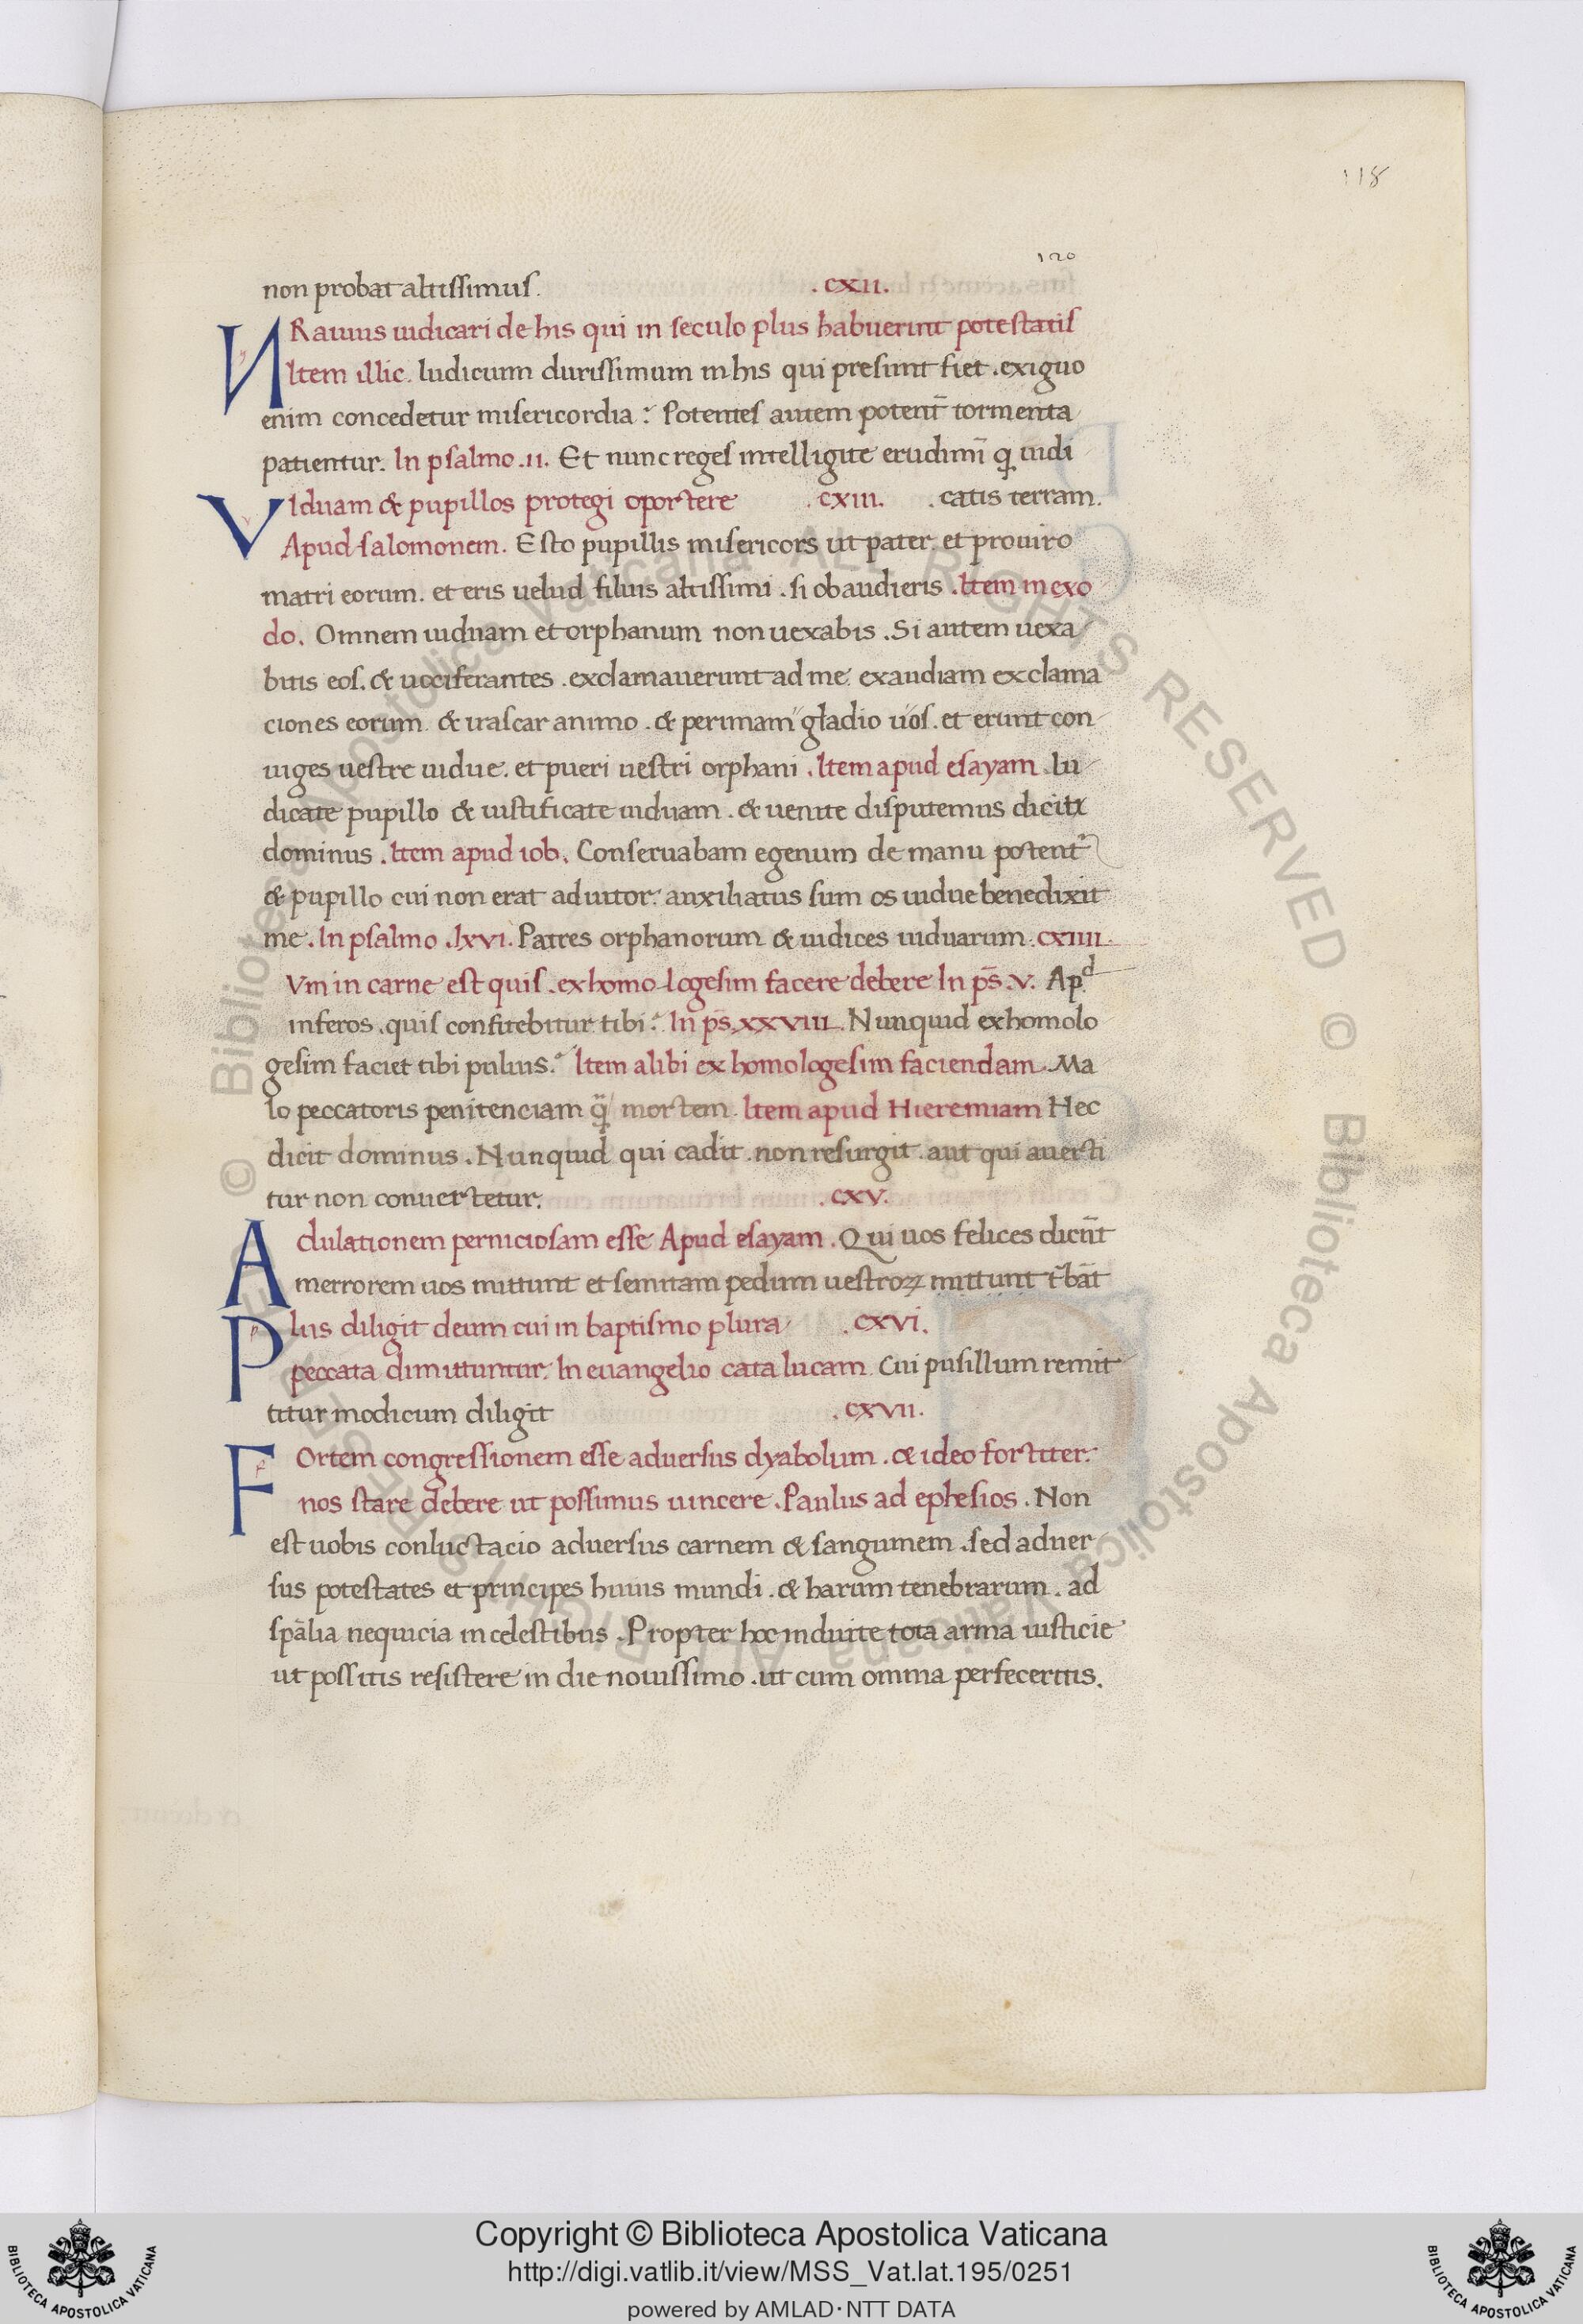 118
120
non probat altissimus. .CXII.
NRauius iudicari de his qui in seculo plus habuerint potestatis
Item illic. Iudicium durissimum in his qui presunt fiet. exiguo
enim concedetur misericordia: Potentes autem potent̄ tormenta
patientur. In psalmo .II. Et nunc reges intelligite erudimī q iudi
VIduam & pupillos protegi oportere .CXIII. .catis terram.
Apud salomonem. Esto pupillis misericors ut pater. et pro uiro
matri eorum. et eris uelud filius altissimi. si obaudieris. Item in exo
do. Omnem uiduam et orphanum non uexabis. Si autem uexa
bitis eos. & uociferantes. exclamauerunt ad me. exaudiam exclama
ciones eorum. & irascar animo. & perimam gladio uos. et erunt con
iuges uestre uidue. et pueri uestri orphani. Item apud esayam. Iu
dicate pupillo & iustificate uiduam. & uenite disputemus dicit
dominus. Item apud iob. Conseruabam egenum de manu potent
& pupillo cui non erat adiutor: auxiliatus sum os uidue benedixit
me. In psalmo .lxvi. Patres orphanorum & iudices uiduarum. CXIIII.
Vm in carne est quis. exhomologesim facere debere In ps̄. V. Apd
inferos. quis confitebitur tibi? In ps̄. XXVIIII. Nunquid exhomolo
gesim faciet tibi puluis? Item alibi exhomologesim faciendam. Ma
lo peccatoris penitenciam q̄ mortem. Item apud Hieremiam Hec
dicit dominus. Nunquid qui cadit. non resurgit. aut qui auerti
tur non conuertetur. .CXV.
Adulationem perniciosam esse Apud esayam. Qui uos felices dicūt
in errorem uos mittunt et semitam pedum uestroꝝ mittunt
Plus diligit deum cui in baptismo plura .CXVI.
peccata dimittuntur. In euangelio cata lucam. Cui pusillum remit
titur modicum diligit .CXVII.
FOrtem congressionem esse aduersus dyabolum. & ideo fortiter
nos stare debere ut possimus uincere. Paulus ad ephesios. Non
est uobis conluctacio aduersus carnem & sanguinem. sed aduer
sus potestates et principes huius mundi. & harum tenebrarum. ad
spālia nequicia in celestibus. Propter hoc induite tota arma iusticie
ut possitis resistere in die nouissimo. ut cum omnia perfeceritis.
© Biblioteca Apostolica Vaticana ALL RIGHTS RESERVED © Biblioteca Apostolica Vaticana ALL RIGHTS RESERVED
Copyright © Biblioteca Apostolica Vaticana
http://digi.vatlib.it/view/MSS_Vat.lat.195/0251
powered by AMLAD·NTT DATA
BIBLIOTECA APOSTOLICA VATICANA
BIBLIOTECA APOSTOLICA VATICANA